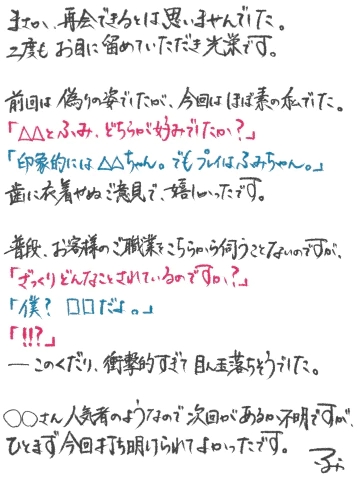 まさか、再会できるとは思いませんでした。
2度もお目に留めていただき光栄です。
前回は偽りの姿でしたが、今回はほぼ素の私でした。
「△△とふみ、どちらが好みでしたか？」
「印象的には△△ちゃん。でもプレイはふみちゃん。」
歯に衣着やぬご意見で、嬉しかったです。
普段、お客様のご職業をこちらから伺うことないのですが、
「ざっくりどんなことされているのですか？」
「僕？ □□だよ。」
「!!?」
―このくだり、衝撃的すぎて目ん玉落ちそうでした。
○○さん人気者のようなので次回があるか不明ですが、
ひとまず今回打ち明けられてよかったです。
ふみ